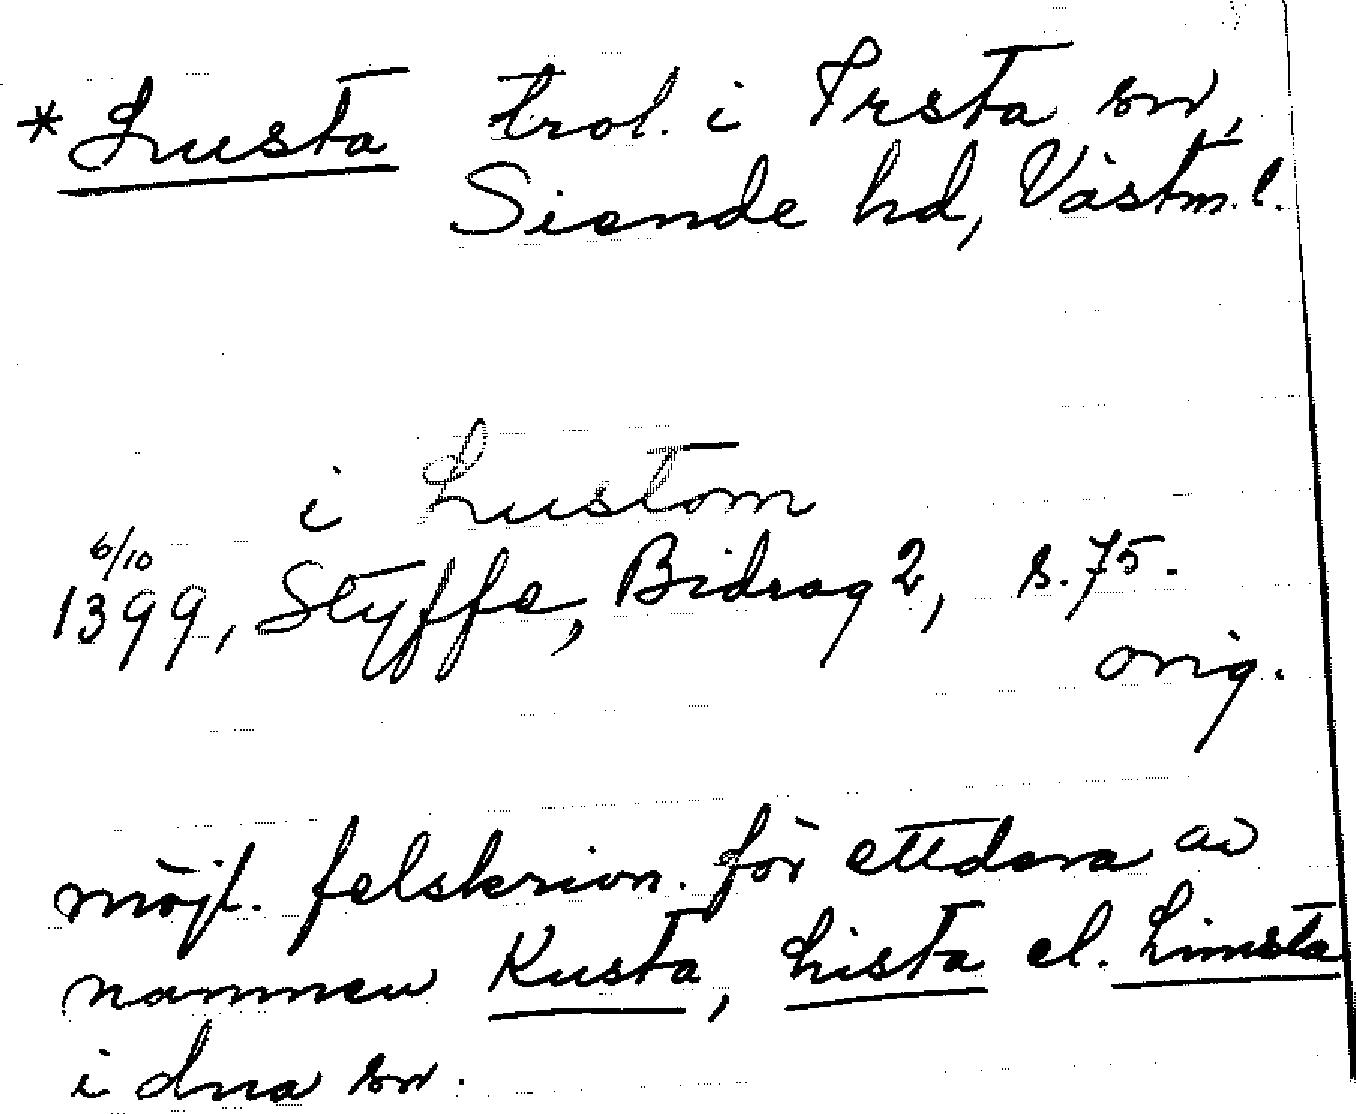 *Lusta trol. i Irsta sn,
Siende hd, Västm.l.
i Lustom
6/10
1399, Styffe, Bidrag 2, s. 75.
orig.
möjl. felskrivn. för ettdera av
namnen Kusta, Lista el. Limsta
i dna sn.